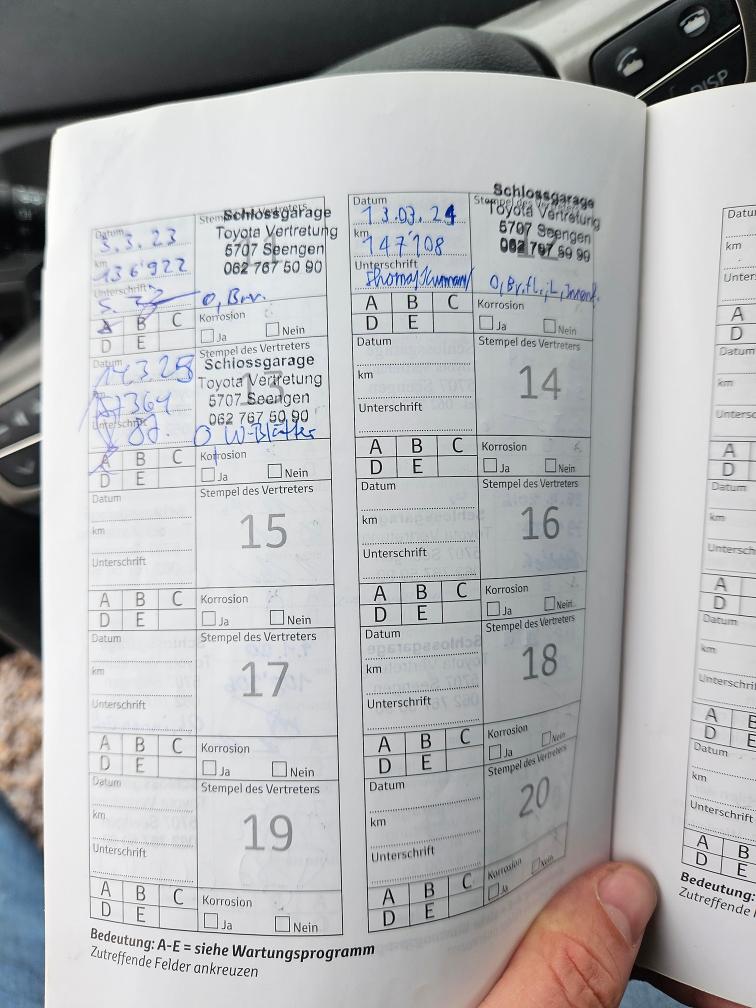 DISP
Datum
3.3.23
km
136'922
Unterschrift
Stempel des Vertreters
Schlossgarage
Toyota Vertretung
5707 Seengen
062 767 50 90
A B C
D E
Korrosion
Ja Nein
Datum
13.03.24
km
147'108
Unterschrift
Schlossgarage
Toyota Vertretung
5707 Seengen
062 767 50 90
A B C
D E
Korrosion
Ja Nein
Datum
14.3.25
km
Unterschrift
Stempel des Vertreters
13
Schlossgarage
Toyota Vertretung
5707 Seengen
062 767 50 90
O W-Blätter
A B C
D E
Korrosion
Ja Nein
Datum
km
Unterschrift
Stempel des Vertreters
14
A B C
D E
Korrosion
Ja Nein
Datum
km
Unterschrift
Stempel des Vertreters
15
A B C
D E
Korrosion
Ja Nein
Datum
km
Unterschrift
Stempel des Vertreters
16
A B C
D E
Korrosion
Ja Nein
Datum
km
Unterschrift
Stempel des Vertreters
17
A B C
D E
Korrosion
Ja Nein
Datum
km
Unterschrift
Stempel des Vertreters
18
A B C
D E
Korrosion
Ja Nein
Datum
km
Unterschrift
Stempel des Vertreters
19
A B C
D E
Korrosion
Ja Nein
Datum
km
Unterschrift
Stempel des Vertreters
20
A B C
D E
Korrosion
Ja Nein
Bedeutung: A-E = siehe Wartungsprogramm
Zutreffende Felder ankreuzen
km
A
D
Datum
km
A
D
Datum
km
A
D
Datum
km
A
D
Datum
km
Unterschrift
A B
D E
Bedeutung:
Zutreffende